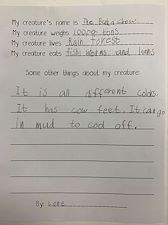 My creature's name is The
My creature weighs 1000g tons
My creature lives Rain forest
My creature eats fish worms and lions
Some other things about my creature:
It is all different colors.
It has cow feet. It can go
in mud to cool off.
By: